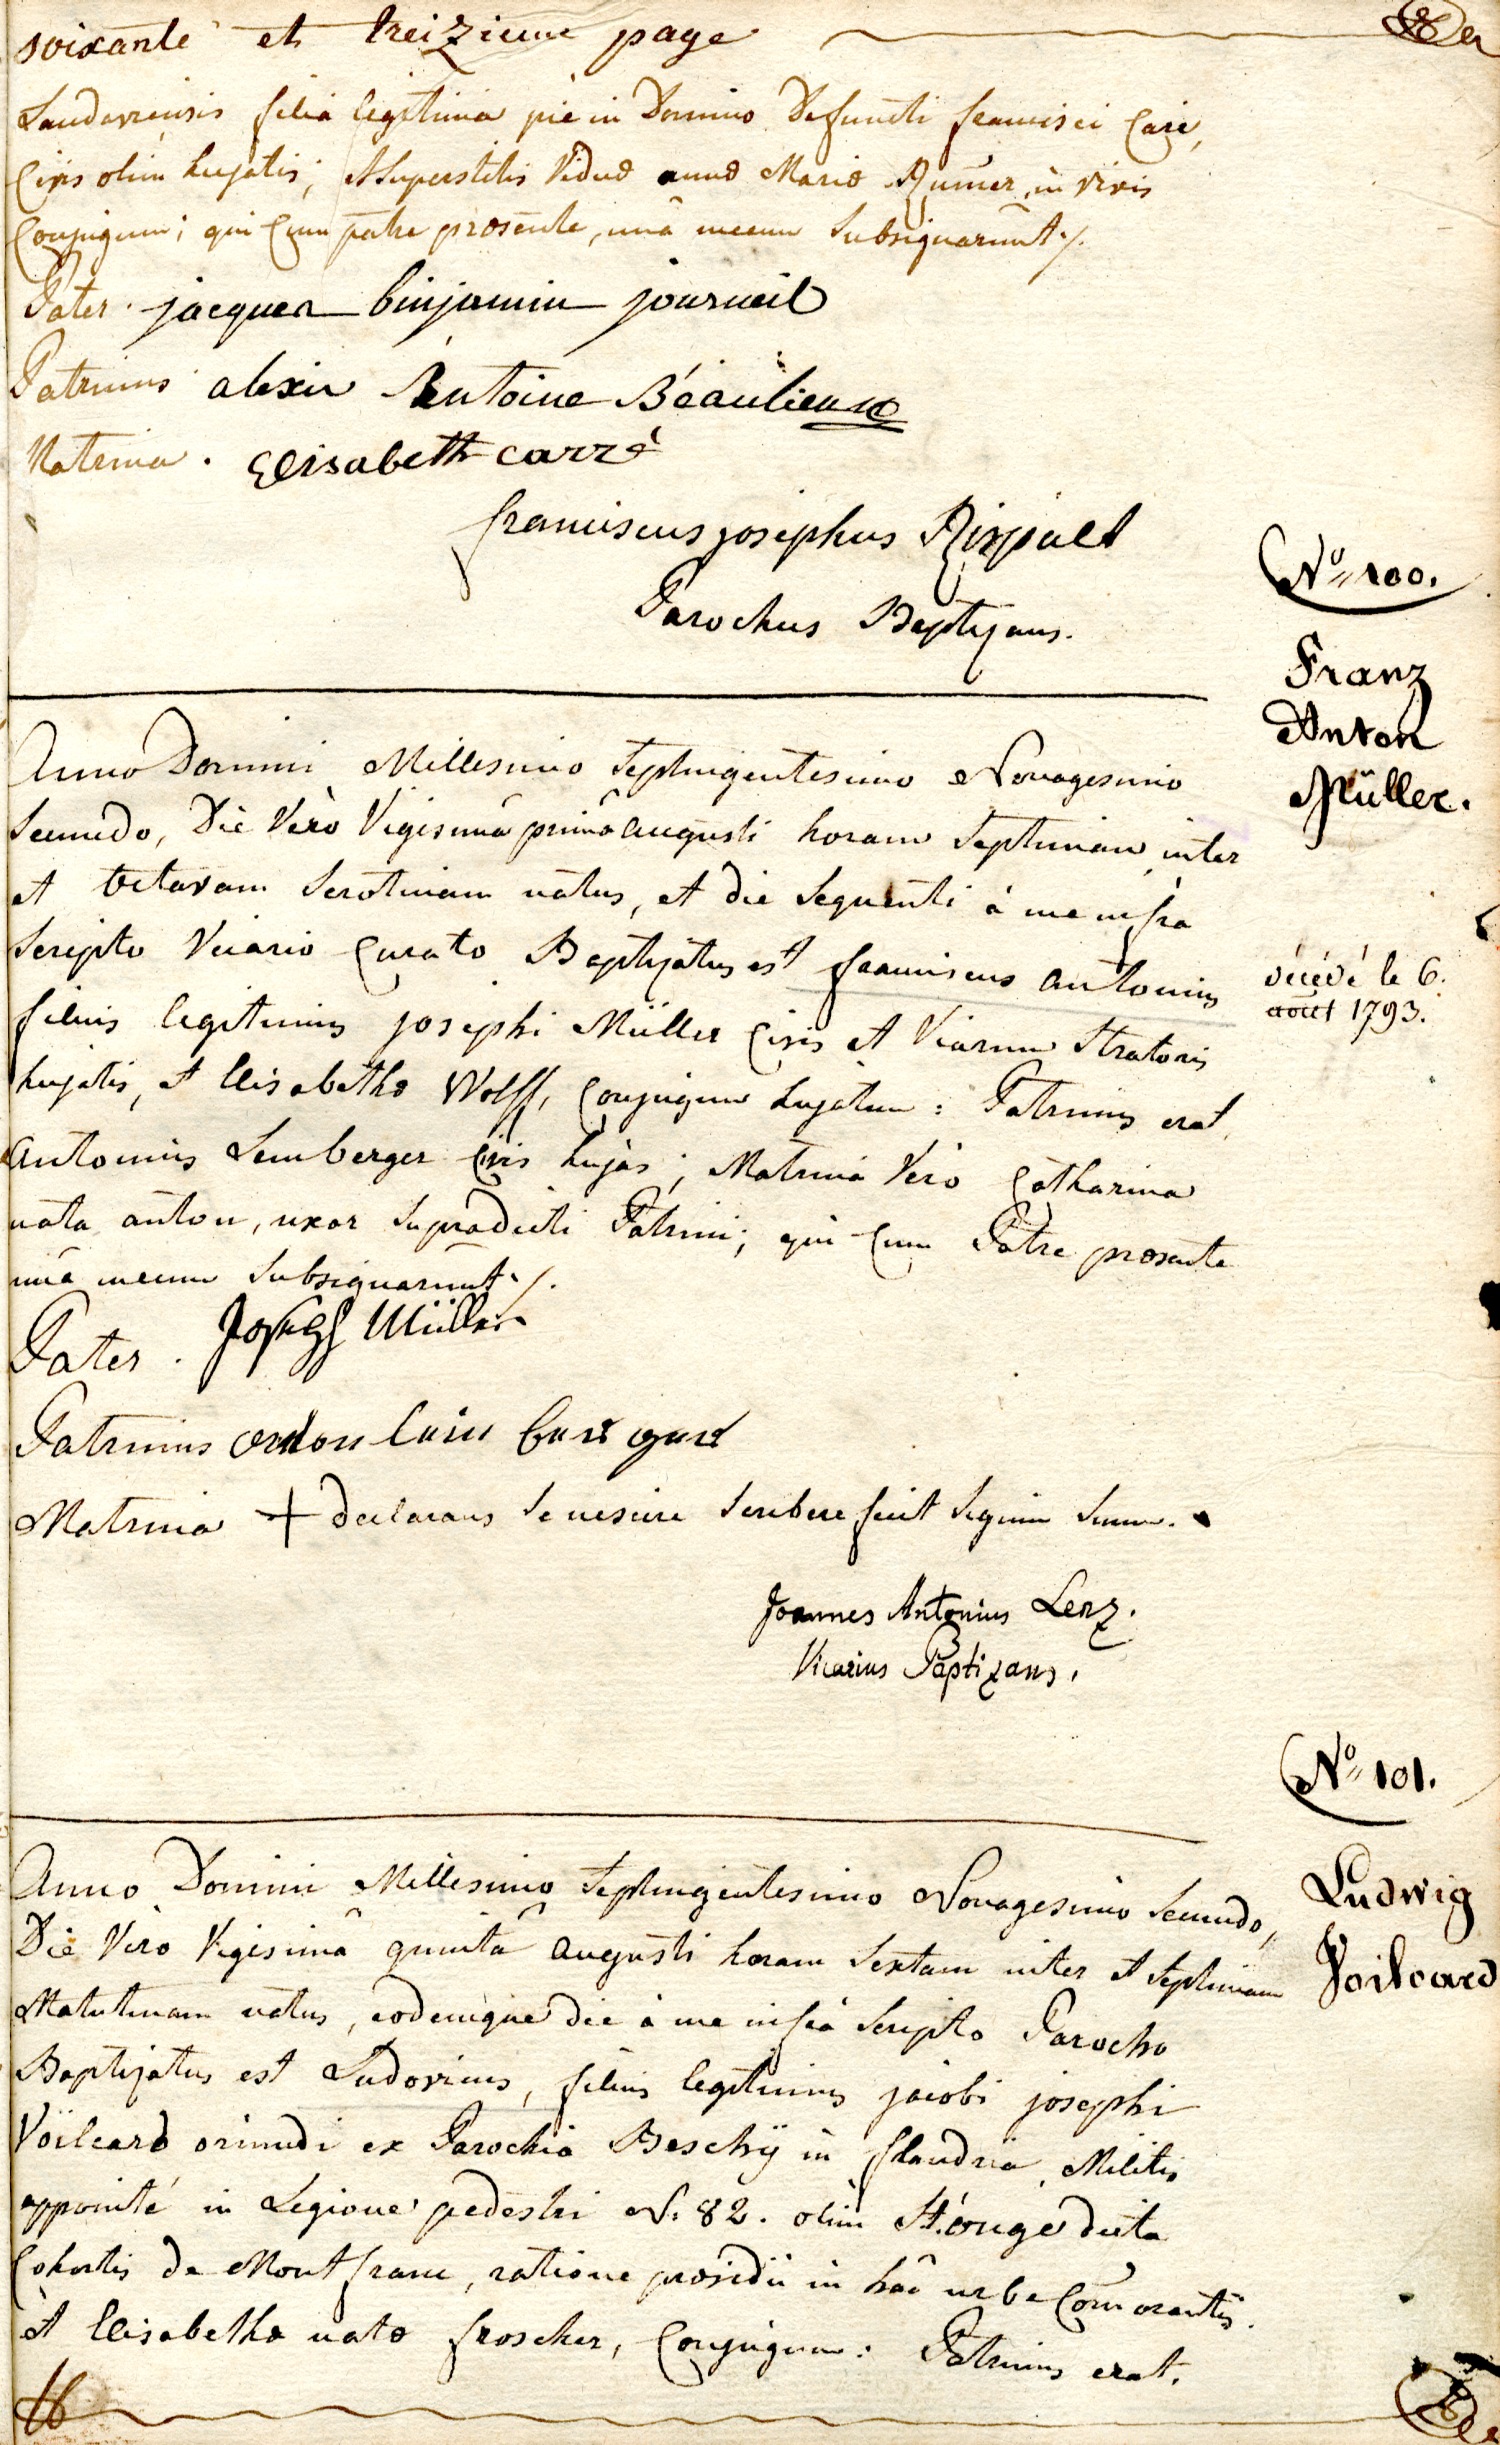 soixante et treizieme page
Landaviensis filia legitima piè in Domino Defuncti francisci Caré,
Civis olim hujatis; et superstitis Viduæ annæ Mariæ Rumer, in vivis
Conjugum; qui Cum patre præsente, unâ mecum Subsignarunt ./.
Pater. jacques binjamin journeil
Patrinus alexis Antoine Béaulieux
Matrina. Elisabeth carré
franciscus josephus Rispalt
Parochus Baptizans.
Nº 100.
Franz
Anton
Müller.
Anno Domini Millesimo Septingentesimo Nonagesimo
Secundo, Die Verò Vigesimâ primâ augusti horam Septimam inter
et octavam Serotinam natus, et die Sequenti à me infra
Scripto Vicario Curato Baptizatus est franciscus antonius
filius legitimus josephi Müller Civis et Viarum Stratoris
hujatis, et Elisabethæ Wolff, Conjugum hujatum: Patrinus erat
antonius Lemberger Civis hujas; Matrina Verò Catharina
nata anton, uxor Supradicti Patrini; qui Cum Patre præsente
unâ mecum Subsignarunt ./.
décédé le 6.
août 1793.
Pater. Joseph Müller
Patrinus
Matrina + declarans Se nescire Scribere fecit Signum Suum.
Joannes Antonius Lenz.
Vicarius Baptizans.
Nº 101.
Ludwig
Voilcard
Anno Domini Millesimo Septingentesimo Nonagesimo Secundo,
Die Verò Vigesimâ quintâ augusti horam Sextam inter et Septimam
Matutinam natus, eodemque die à me infrà Scripto Parocho
Baptizatus est Ludovicus, filius legitimus jacobi josephi
Voilcard oriundi ex Parochia Beschÿ in flandria, Militis
appointé in Legione pedestri N. 82. olim St. onge dicta
Cohortis de Montfranc, ratione præsidii in hâc urbe Comorantis.
et Elisabethæ natæ froscher, Conjugum: Patrinus erat.